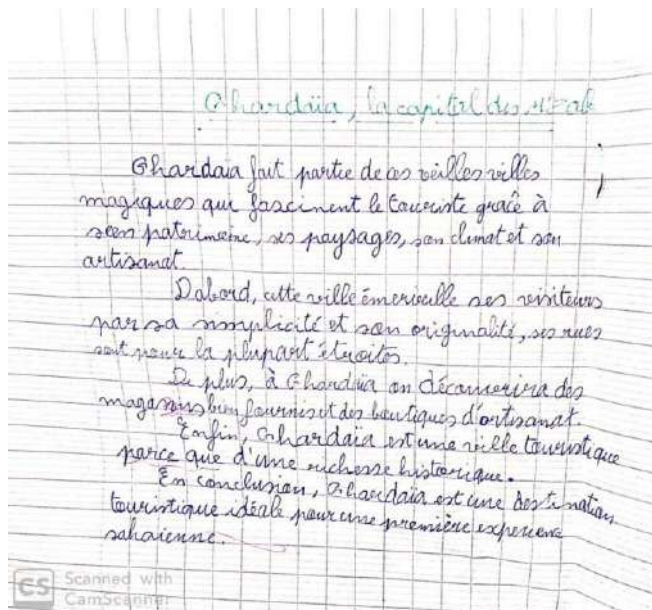 Ghardaïa, la capital des M'zab
Ghardaia fait partie de ces veilles villes
magiques qui fascinent le touriste gracê à
seen patrimoine, ses paysages, son climat et son
artisanat.
Dabord, cette ville émerveille ses visiteurs
par sa simplicité et son originalité, ses rues
sont pour la plupart étroites.
De plus, à Ghardaïa on découvrira des
magasins bien fournis et des boutiques d'artisanat.
Enfin, Ghardaïa est une ville touristique
parce que d'une richesse historique.
En conclusion, Ghardaïa est une destination
touristique idéale pour une première experience
sahaienne.
CS Scanned with
CamScanner